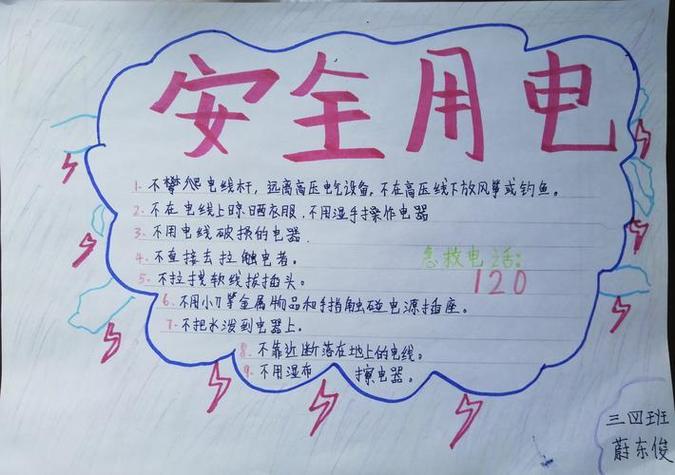 安全用电
1. 不攀爬电线杆，远离高压电气设备。不在高压线下放风筝或钓鱼。
2. 不在电线上晾晒衣服，不用湿手操作电器
3. 不用电线破损的电器.
4. 不直接去拉触电者。
急救电话：
120
5. 不拉拽软线拔插头。
6. 不用小刀等金属物品和手指触碰电源插座。
7. 不把水泼到电器上.
8. 不靠近断落在地上的电线。
9. 不用湿布 擦电器。
三四班
蔚东俊